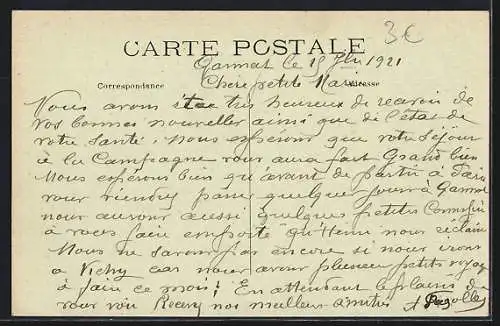 3€
CARTE POSTALE
Gannat le 15 1921
Correspondance
Chère petite Marie
Adresse
Nous avons étée très heureux de recevoir de
vos bonnes nouvelles ainsi que de l'état de
votre santé. Nous espérons que votre séjour
à la Campagne vous aura fait Grand bien
Nous espérons bien qu'avant de partir à Paris
vous viendrez passer quelques jours à Gannat
nous aurons aussi quelques petites Commissions
à vous faire emporté qu'Henri nous réclame
Nous ne savons pas encore si nous irons
à Vichy car nous avons plusieurs petits voyages
à faire ce mois. En attendant le plaisir de
vous voir Recevez nos meilleurs amitiés